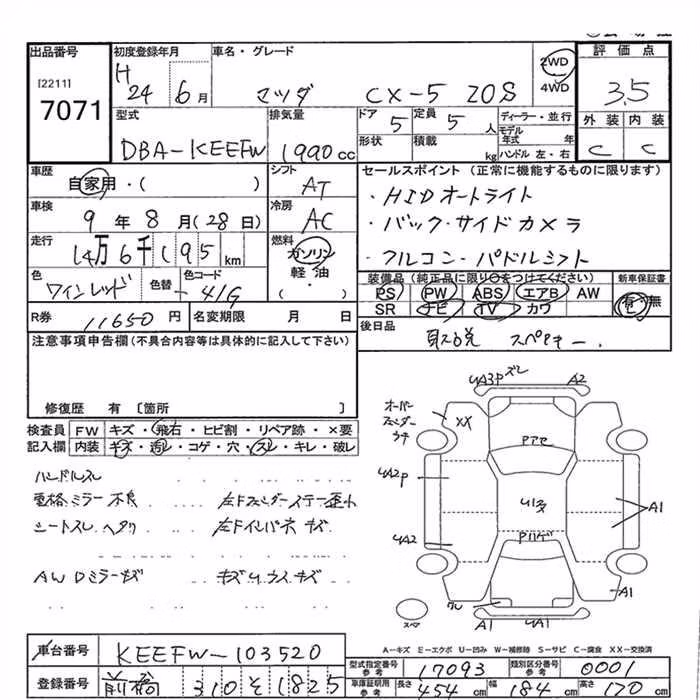 出品番号
[2211]
7071
初度登録年月
H
24 6月
車名・グレード
マツダ CX-5 20S
2WD
4WD
評価点
3.5
型式
DBA-KEEFW
排気量
1990cc
ドア 5
形状
定員 5人
積載 kg
ディーラー・並行
モデル年式 年
ハンドル 左・右
外装 内装
C C
車歴
自家用・( )
シフト
AT
セールスポイント (正常に機能するものに限ります)
車検
9年 8月 (28日)
冷房
AC
・HIDオートライト
・バック・サイドカメラ
・フルコン・パドルシフト
走行
14万6千195km
燃料
ガソリン
軽油
・( )
色
ワインレッド
色替
色コード
41G
装備品 (純正品に限り○をつけてください)
新車保証書
PS PW ABS エアB AW
有・無
SR ナビ TV カワ
R券 11650円
名変期限 月 日
後日品
取説 スペアキー.
注意事項申告欄(不具合内容等は具体的に記入して下さい)
修復歴 有 [箇所 ]
検査員記入欄
FW キズ・飛石・ヒビ割・リペア跡・×要
内装 キズ・汚レ・コゲ・穴・スレ・キレ・破レ
ハンドルスレ
電格ミラー不良 左Fフェンダーステー歪ミ
シートスレ ヘタリ 左Fインパネキズ
AWDミラーキズ キズUウスキズ
UA3P ズレ A2
オーバーフェンダーウキ
XX
UA2P
UA2
A1
A1
A1 UA1
スペア
A-キズ E-エクボ U-凹み W-補修跡 S-サビ C-腐食 XX-交換済
車台番号 KEEFW-103520
登録番号 前橋 310 そ 1825
型式指定番号 参考 17093
類別区分番号 参考 0001
車庫証明用 参考 長さ 454cm 幅 184cm 高さ 170cm